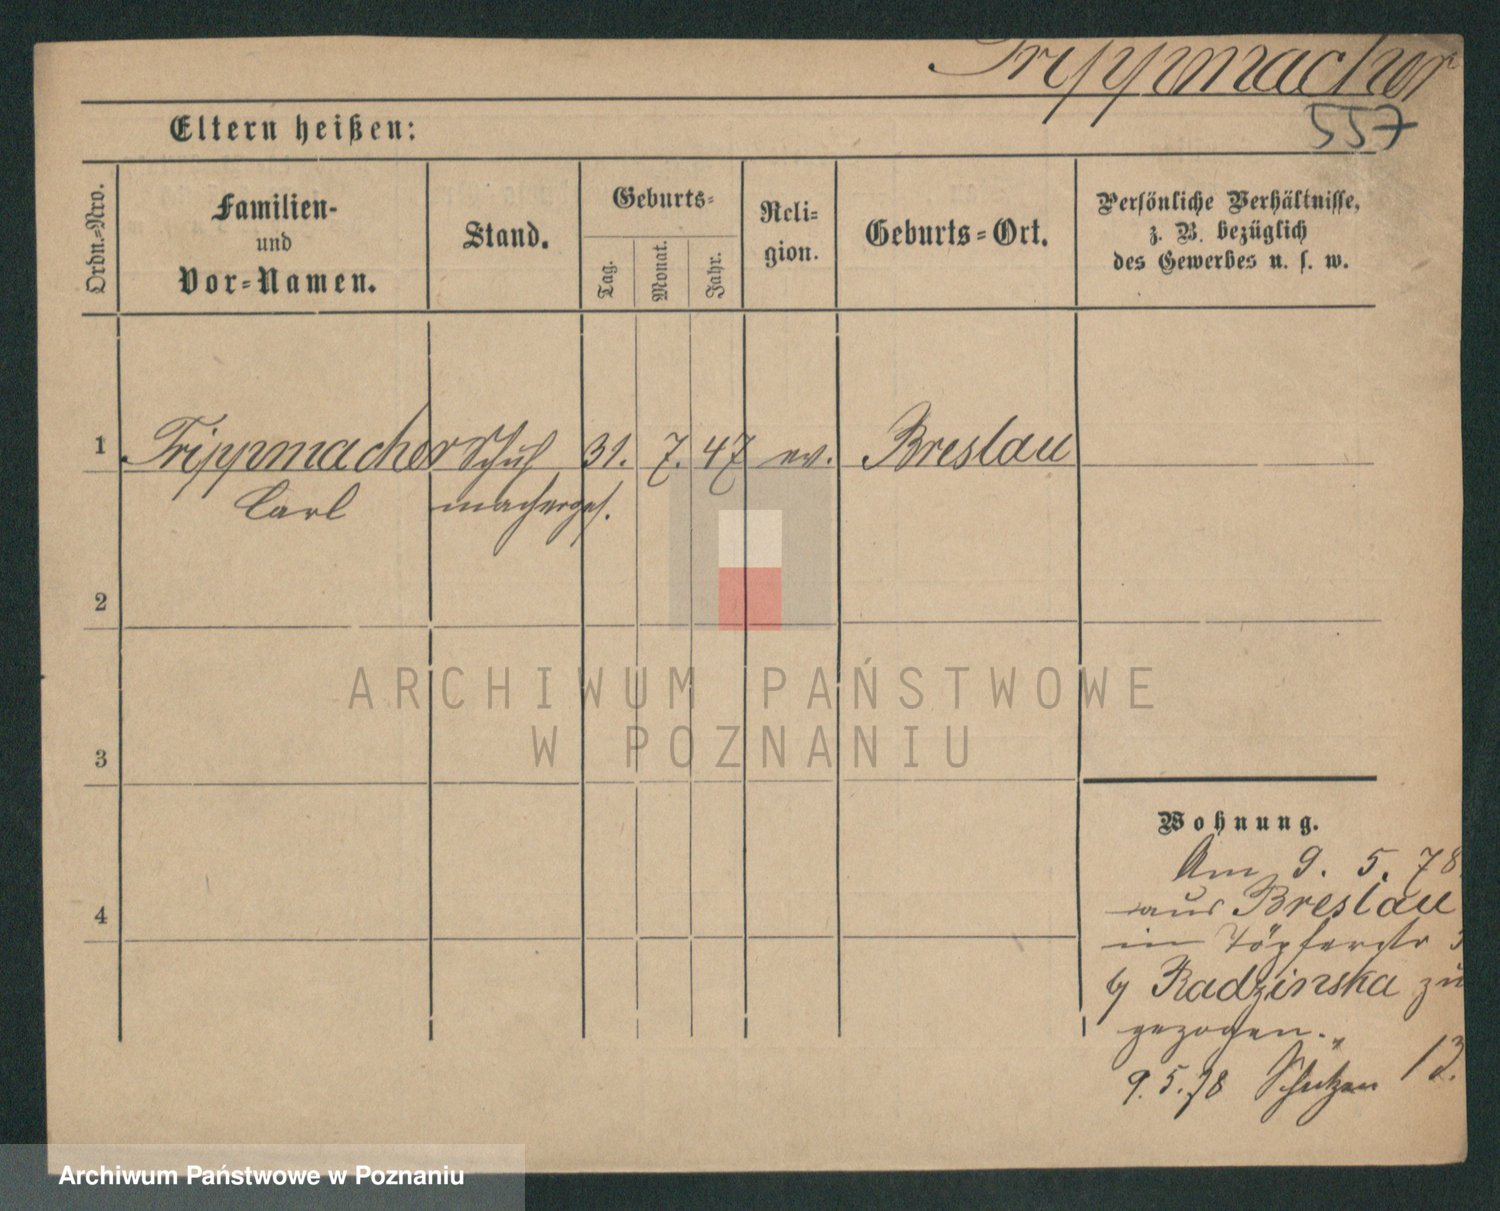 Trippmacher
557
Eltern heißen:
Ordn.=Nro.
Familien-
und
Vor=Namen.
Stand.
Geburts=
Tag.
Monat.
Jahr.
Reli=
gion.
Geburts=Ort.
Persönliche Verhältnisse,
z. B. bezüglich
des Gewerbes u. s. w.
1 Trippmacher Schuh 31. 7. 47 ev. Breslau
Carl machergs.
2
3
4
Wohnung.
Am 9. 5. 78
aus Breslau
in Töpferstr 3
by Radzinska zu
gezogen.
9.5.78 Schützen 13.
ARCHIWUM PAŃSTWOWE
W POZNANIU
Archiwum Państwowe w Poznaniu